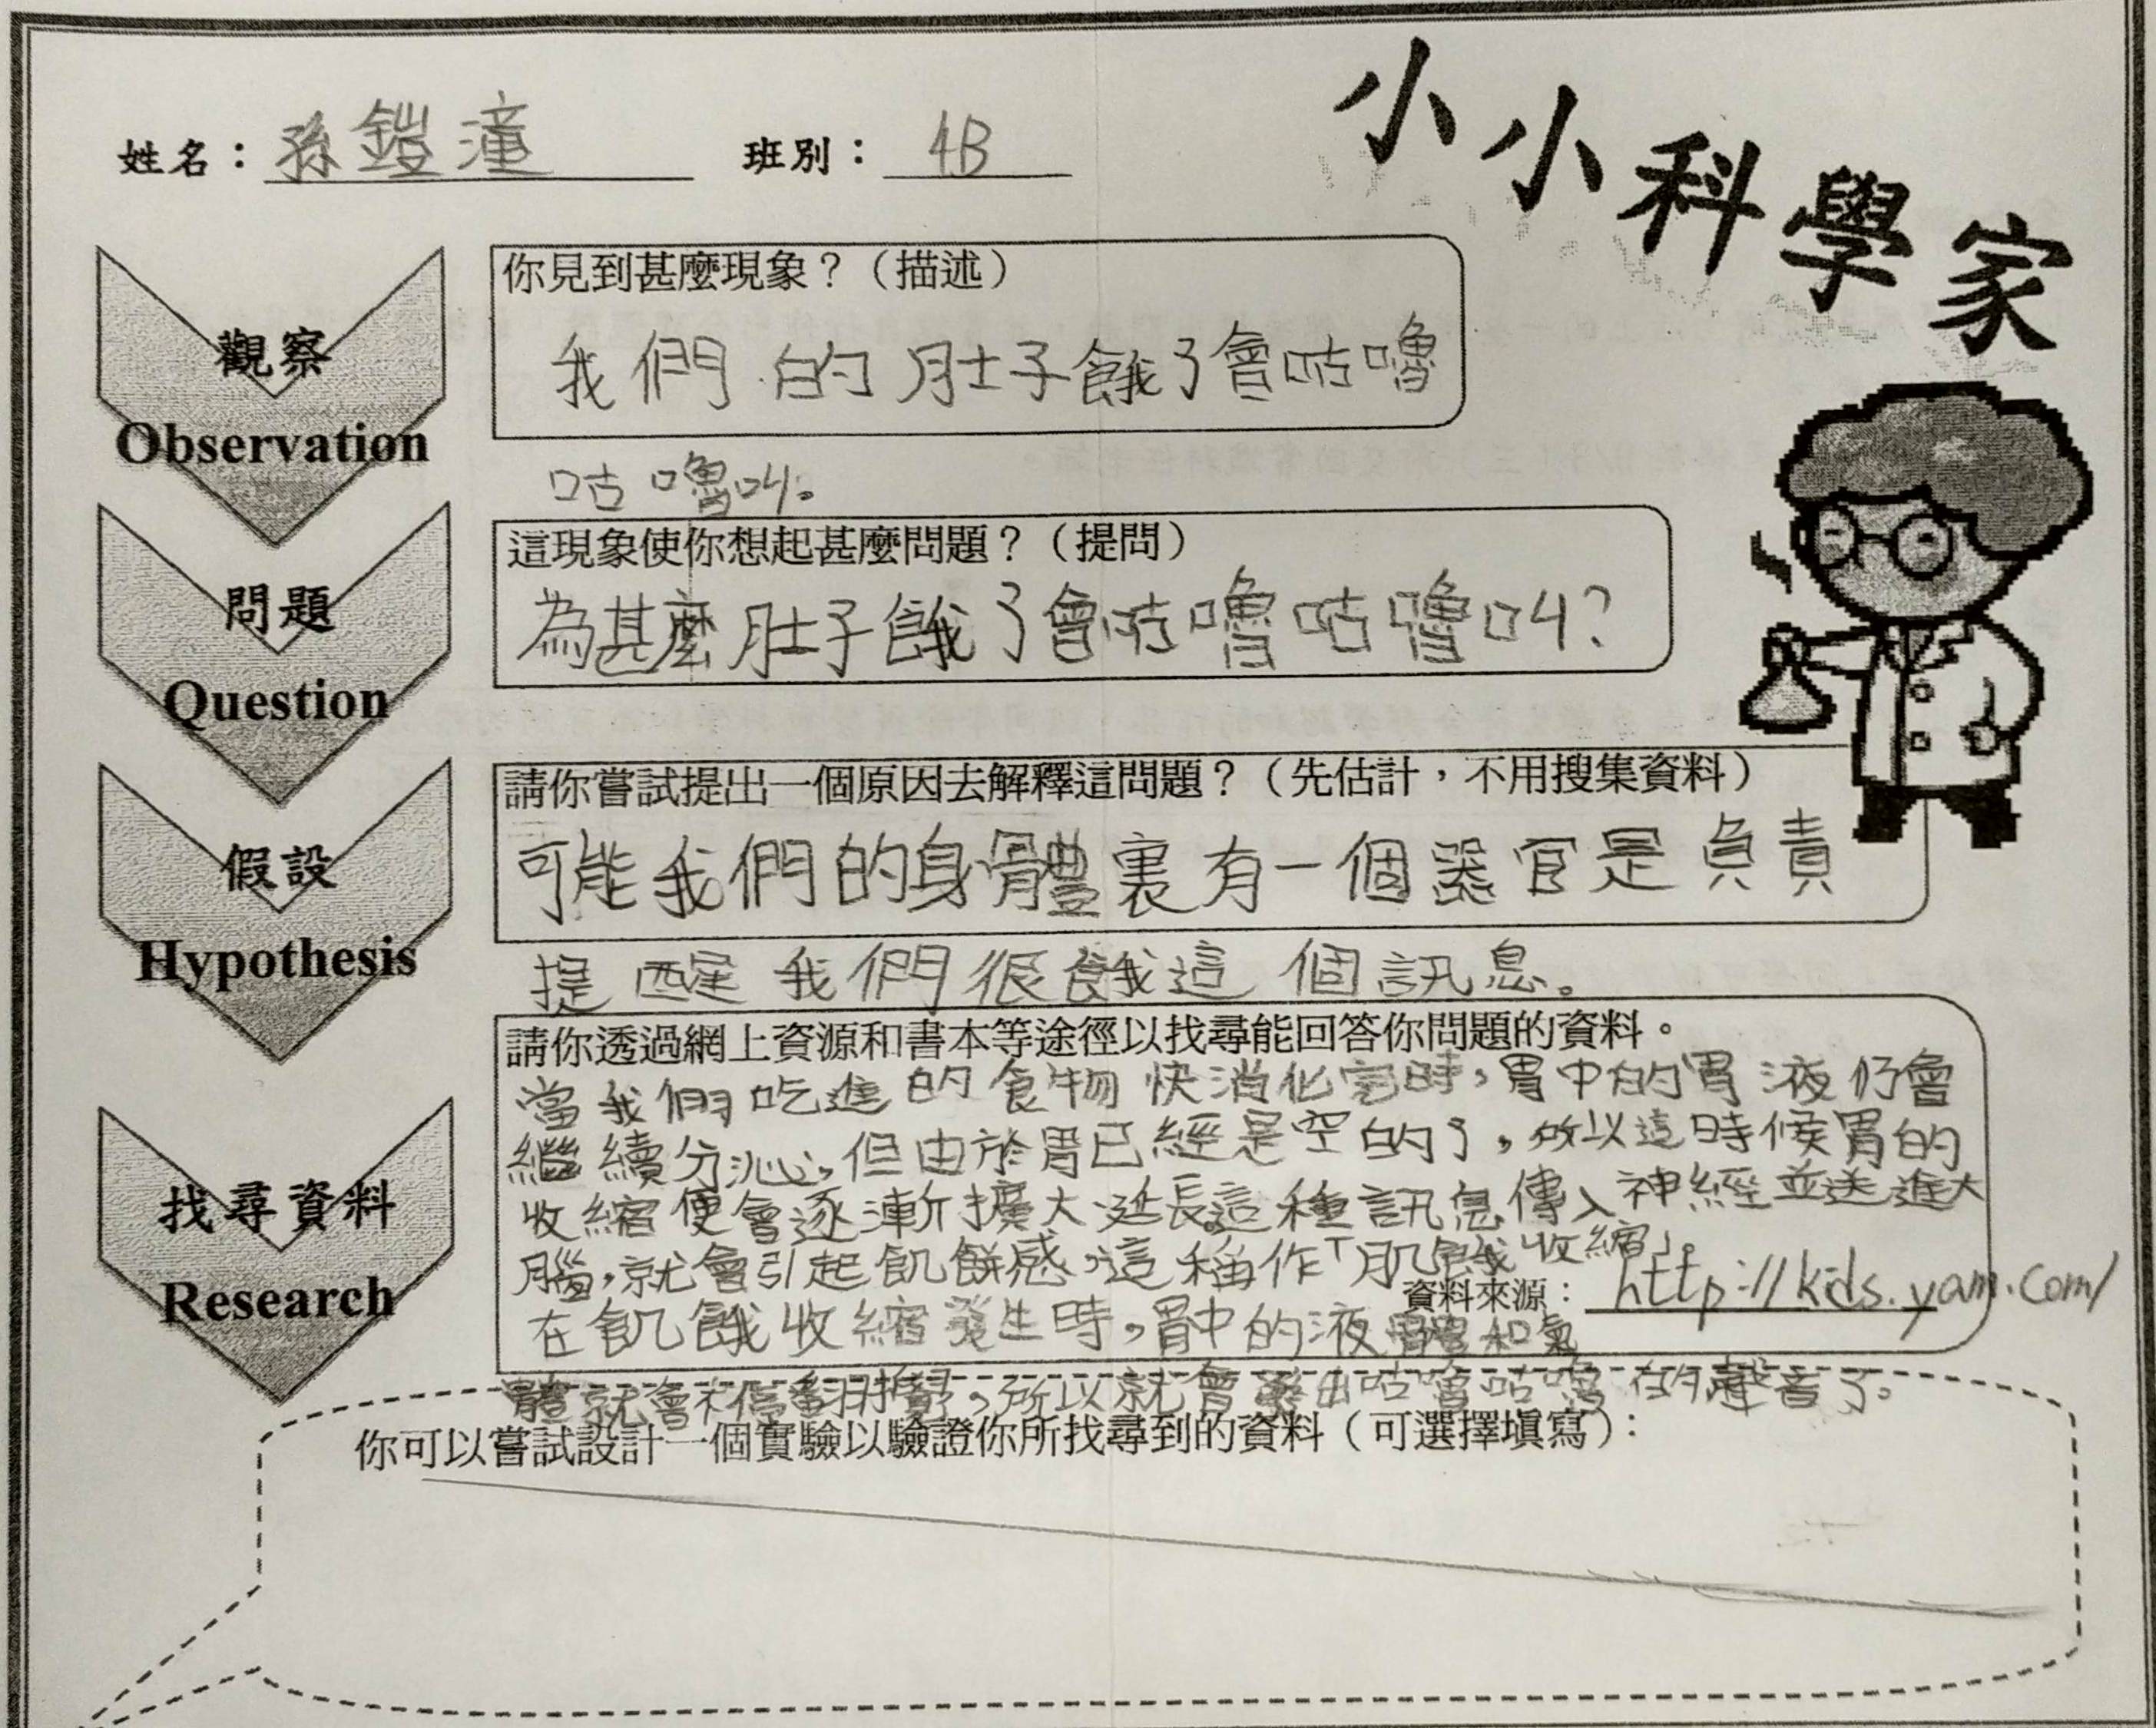 小小科學家
姓名：孫鎧潼 班別：4B
觀察
Observation
你見到甚麼現象？（描述）
我們的肚子餓了會咕嚕
咕嚕叫。
問題
Question
這現象使你想起甚麼問題？（提問）
為甚麼肚子餓了會咕嚕咕嚕叫？
假設
Hypothesis
請你嘗試提出一個原因去解釋這問題？（先估計，不用搜集資料）
可能我們的身體裏有一個器官是負責
提醒我們很餓這個訊息。
找尋資料
Research
請你透過網上資源和書本等途徑以找尋能回答你問題的資料。
當我們吃進的食物快消化完時，胃中的胃液仍會
繼續分沁，但由於胃已經是空的了，所以這時候胃的
收縮便會逐漸擴大延長。這種訊息傳入神經並送進大
腦，就會引起飢餓感，這稱作「肌餓收縮」。
在飢餓收縮發生時，胃中的液體和氣
體就會不停翻攪，所以就會發出咕嚕咕嚕的聲音了。
資料來源：http://kids.yam.com/
你可以嘗試設計一個實驗以驗證你所找尋到的資料（可選擇填寫）：